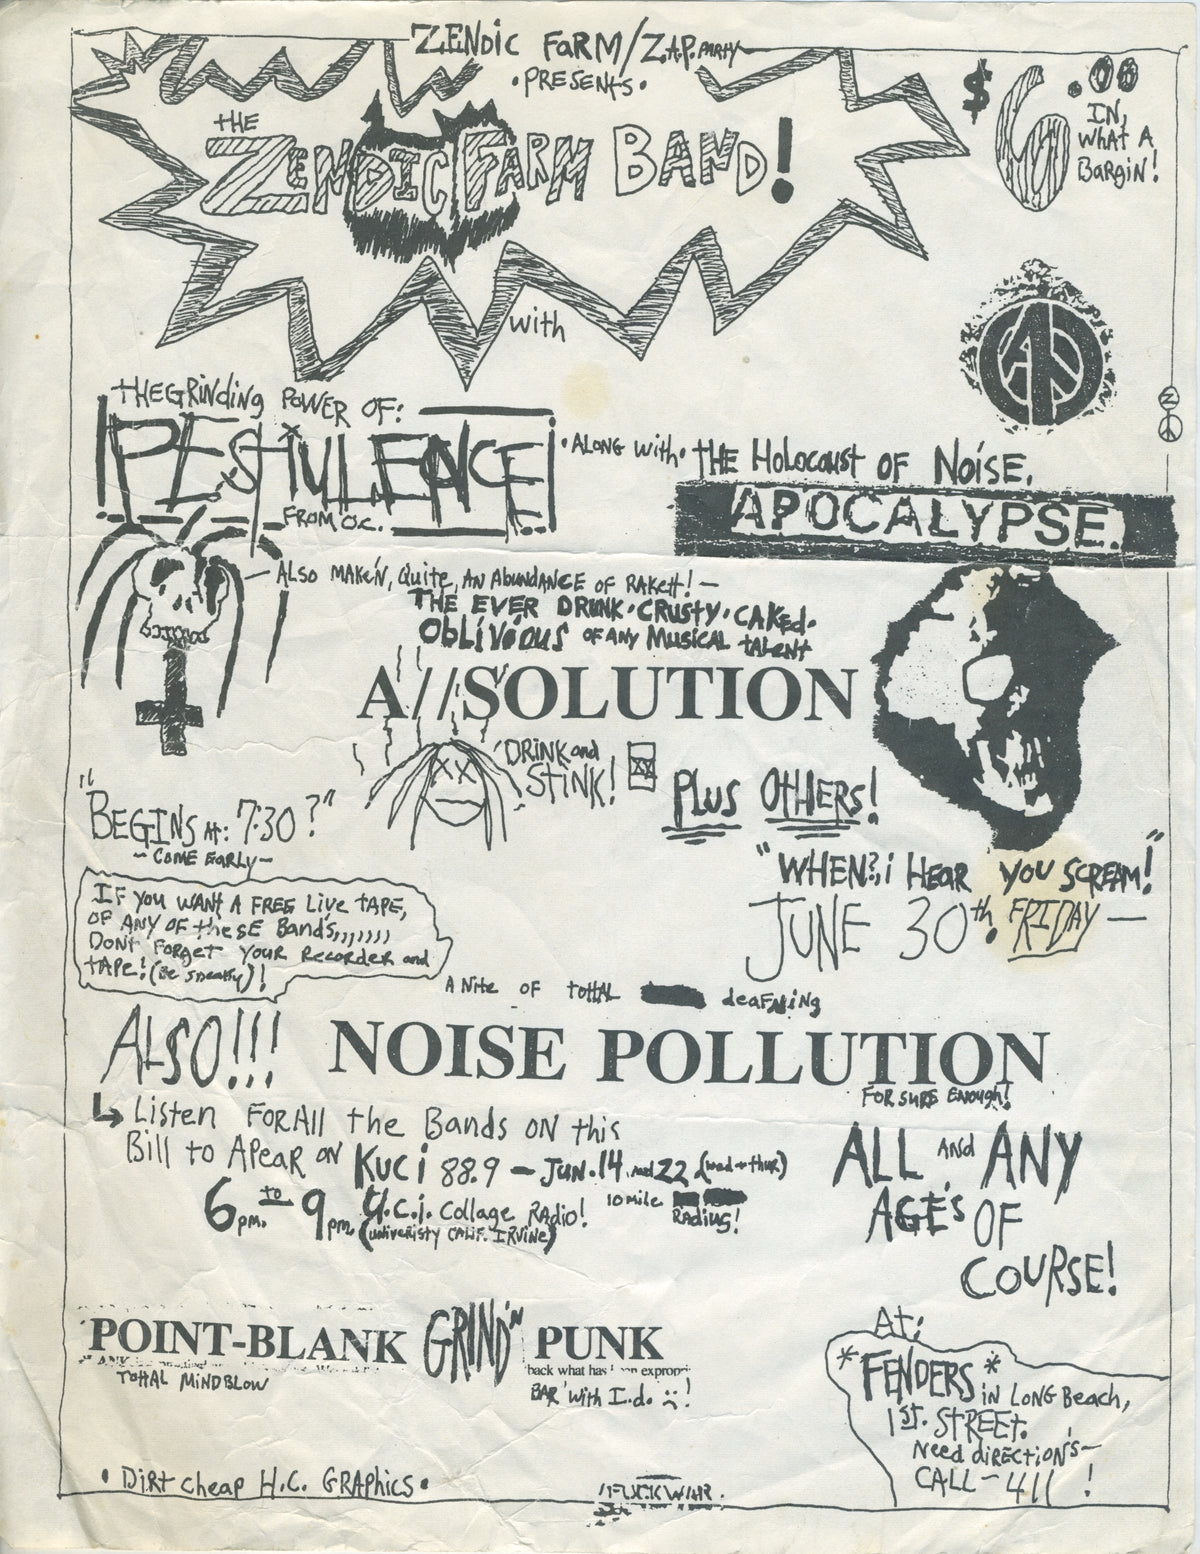 ZENDIC FARM/Z.A.P. PARTY
·PRESENTS·
THE
ZENDIC FARM BAND!
$6.00
IN,
WHAT A
BARGIN!
with
THE GRINDING POWER OF:
PESTULENCE!
FROM O.C.
·ALONG WITH· THE HOLOCAUST OF NOISE.
APOCALYPSE.
— ALSO MAKE'N, QUITE, AN ABUNDANCE OF RAKETT! —
THE EVER DRINK·CRUSTY·CAKED·
OBLIVIOUS OF ANY MUSICAL TALENT
A//SOLUTION
'DRINK and
STINK!
PLUS OTHERS!
"BEGINS AT: 7:30?"
~COME EARLY~
"WHEN?, i HEAR YOU SCREAM!"
JUNE 30th. FRIDAY —
IF YOU WANT A FREE LIVE TAPE,
OF ANY OF theSE Bands,,,,,,,
DONT FORGET YOUR RECORDER and
TAPE! (BE SNEAKY)!
A Nite OF TOTTAL deaFNiNg
ALSO!!! NOISE POLLUTION
FOR SURE ENOUGH!
Listen FOR All the Bands ON this
Bill to APEAR ON KUCi 88.9 — JUN. 14 and 22 (wed + thur)
6 pm. to 9 pm. U.C.i. Collage RADiO! 10 mile RADiUS!
(univeristy CALiF. IRVINE)
ALL AND ANY
AGE'S OF
COURSE!
POINT-BLANK GRIND'N PUNK
back what has
TOTTAL MINDBLOW
BAR' with I.d. !
At:
*FENDERS* iN LONG Beach,
1ST. STREET.
Need diRECTION'S—
CALL — 411 !
· DIRT CHEAP H.C. GRAPHICS ·
FUCK WAR.